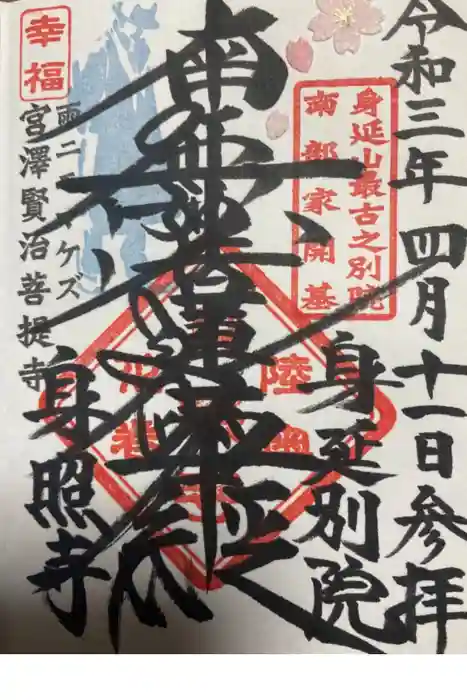 令和三年四月十一日参拝
身延山最古之別院
南部家開基
身延別院
南無妙法蓮華経
幸福
雨ニモマケズ
宮澤賢治菩提寺
身照寺